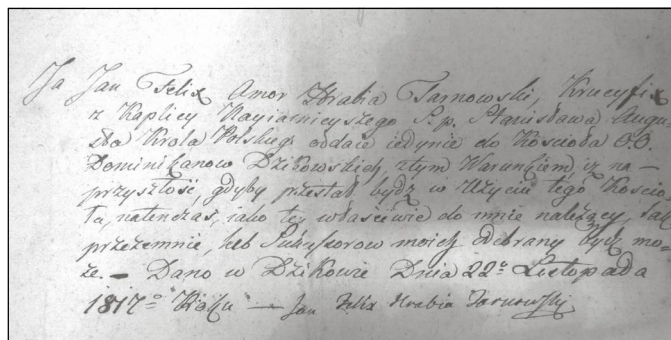 Ja Jan Felix Amor Hrabia Tarnowski, Krucyfix
z Kaplicy Nayiasnieyszego S.p. Stanisława Augu
sta Krola Polskieg° oddaie iedynie do Kościoła O.O.
Dominikanow Dzikowskich ztym Warunkiem, iz na–
przyszłość, gdyby przestał bydz w Użyciu tego Kościo
ła, natenczas, iako też właściwie do mnie należący, bąć
przezemnie, lub Sukcessorow moich odibrany być mo=
że. – Dano w Dzikowie Dnia 22° Listopada
1817° Roku — Jan Felix Hrabia Tarnowski